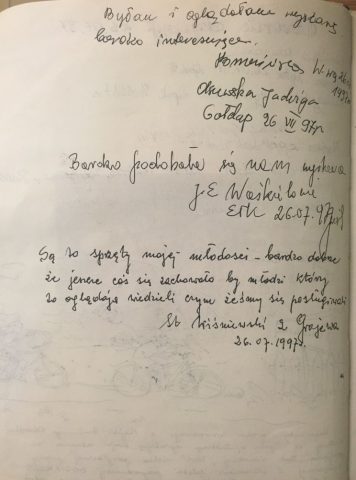 Byłam i oglądałam wystawę
bardzo interesująca.
W-wa 26
1997r
Jadwiga
Gołdap 26 VII 97r
Bardzo podobała się nam wystawa
J.E
Ełk 26.07.97r
Są to sprzęty mojej młodości – bardzo dobrze
że jeszcze coś się zachowało by młodzi którzy
to oglądają wiedzieli czym żeśmy się posługiwali
Wiśniewski z Grajewa
26.07.1997r.